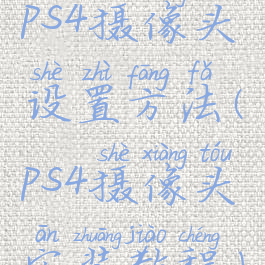 PS4摄像头
shè zhì fāng fǎ
设置方法(
shè xiàng tóu
PS4摄像头
ān zhuāng jiào chéng
安装教程)